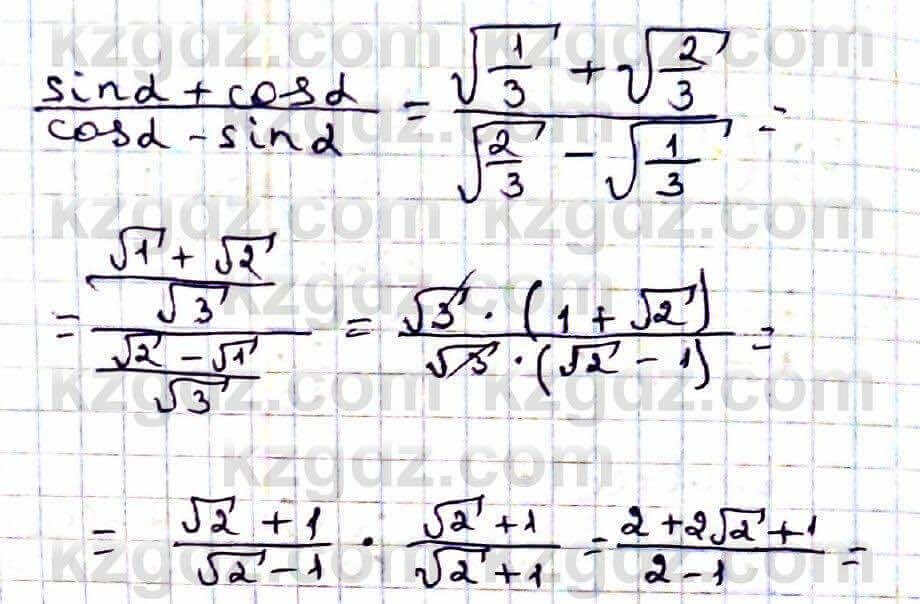 kzgdz.com kzgdz.com
(sinα + cosα)/(cosα - sinα) = (√(1/3) + √(2/3))/(√(2/3) - √(1/3)) =
kzgdz.com kzgdz.com
= ((√1 + √2)/√3)/((√2 - √1)/√3) = (√3 · (1 + √2))/(√3 · (√2 - 1)) =
kzgdz.com kzgdz.com
kzgdz.com
= (√2 + 1)/(√2 - 1) · (√2 + 1)/(√2 + 1) = (2 + 2√2 + 1)/(2 - 1) =
kzgdz.com kzgdz.com